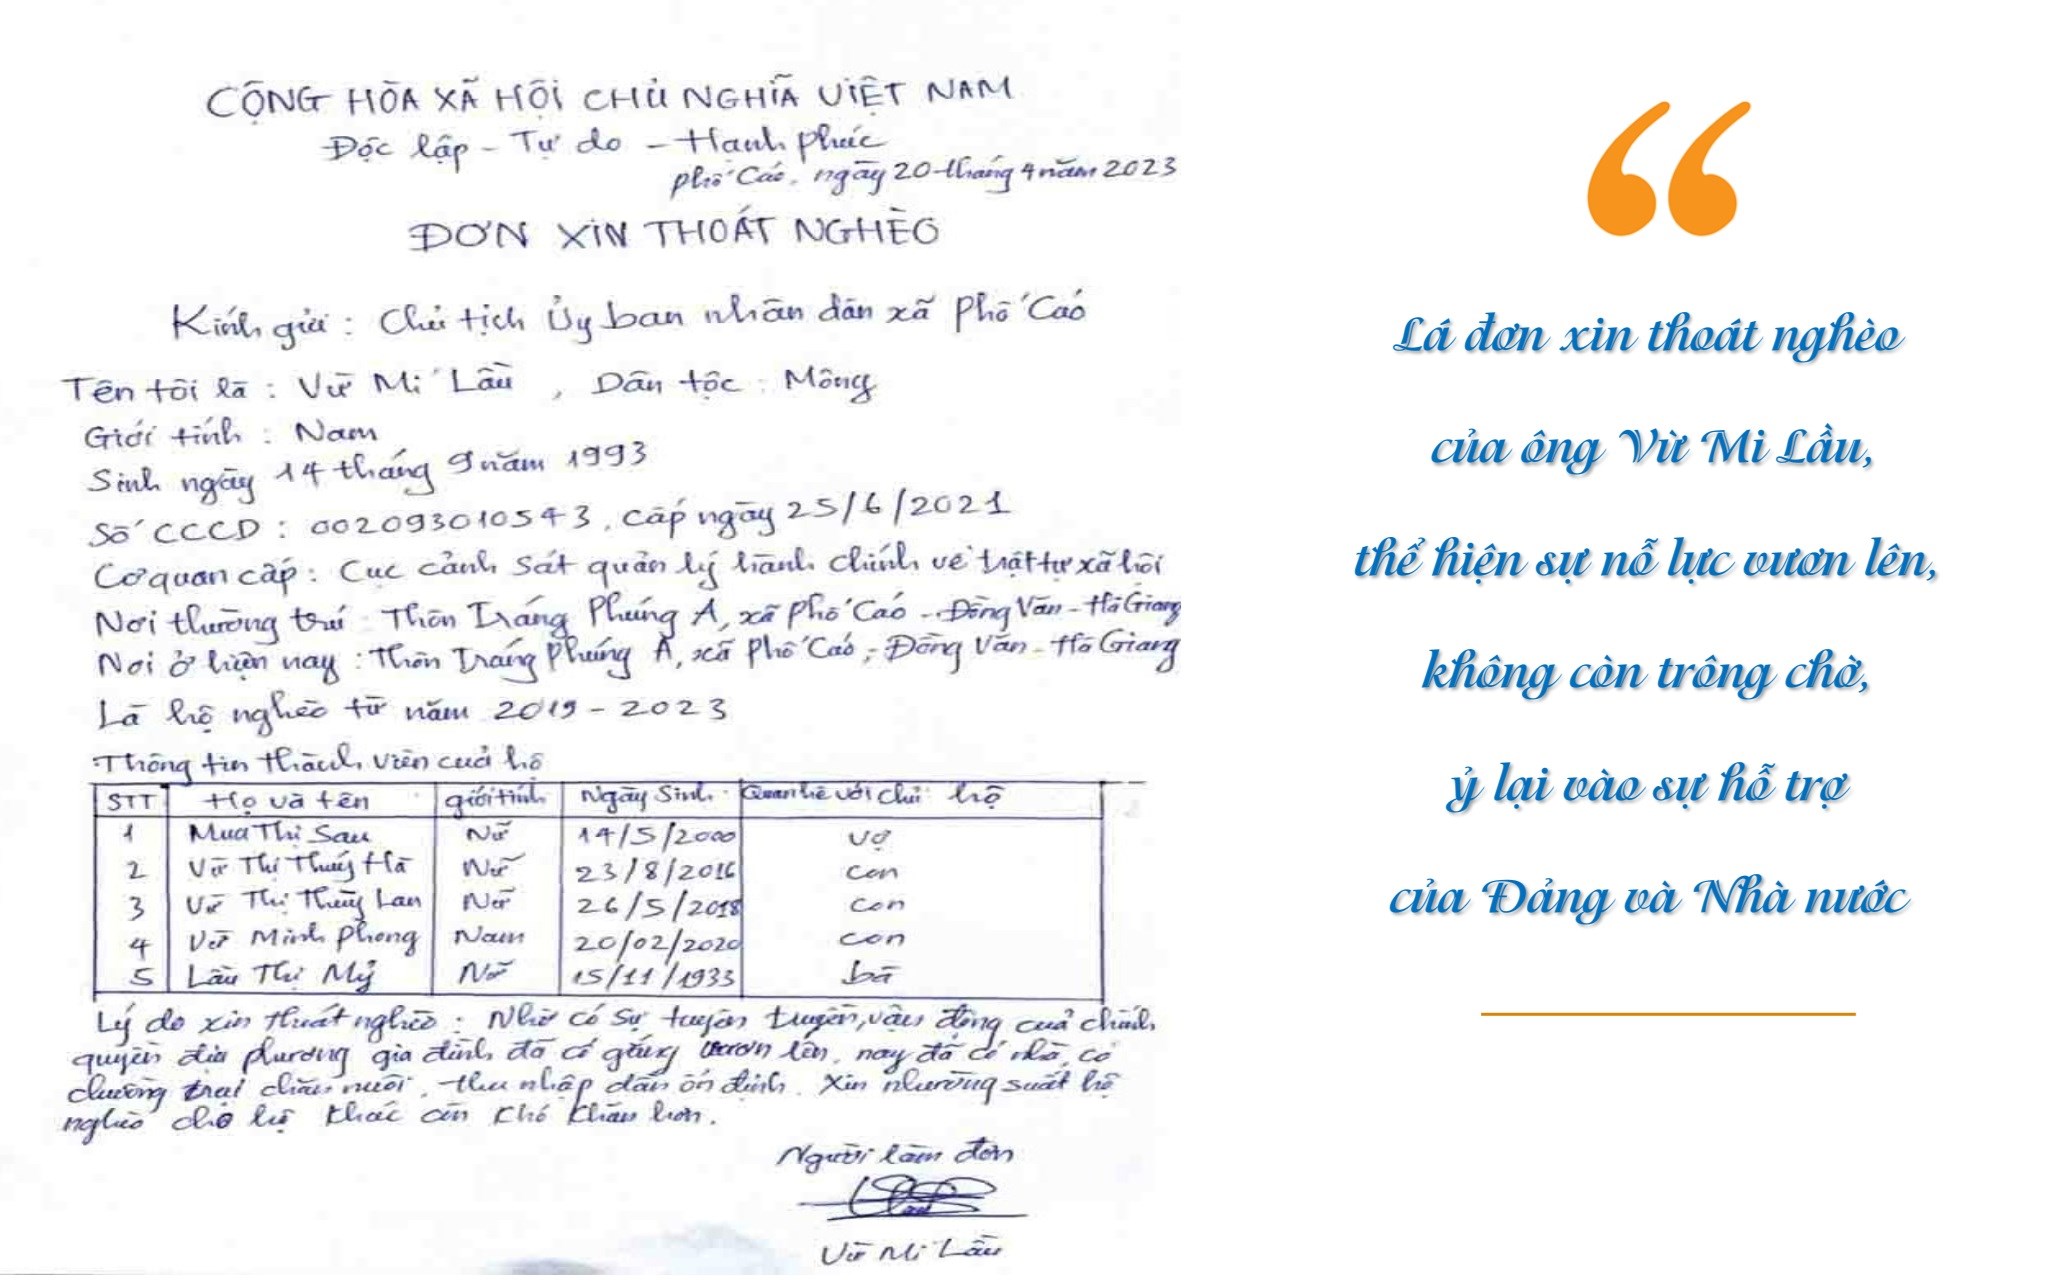 CỘNG HÒA XÃ HỘI CHỦ NGHĨA VIỆT NAM
Độc lập - Tự do - Hanh phúc
phố Cáo, ngày 20 tháng 4 năm 2023
ĐƠN XIN THOÁT NGHÈO
Kính gửi : Chủ tịch Ủy ban nhân dân xã Phố Cáo
Tên tôi là : Vừ Mi Lầu , Dân tộc : Mông
Giới tính : Nam
Sinh ngày 14 tháng 9 năm 1993
Số CCCD : 002093010543, cấp ngày 25/6/2021
Cơ quan cấp : Cục cảnh sát quản lý hành chính về trật tự xã hội
Nơi thường trú : Thôn Tráng Phúng A, xã Phố Cáo - Đồng Văn - Hà Giang
Nơi ở hiện nay : Thôn Tráng Phúng A, xã Phố Cáo, - Đồng Văn - Hà Giang
Là hộ nghèo từ năm 2019 - 2023
Thông tin thành viên của hộ
STT Họ và tên giới tính Ngày Sinh Quan hệ với chủ hộ
1 Mua Thị Sau Nữ 14/5/2000 vợ
2 Vừ Thị Thuý Hà Nữ 23/8/2016 con
3 Vừ Thị Thùy Lan Nữ 26/5/2018 con
4 Vừ Minh Phong Nam 20/02/2020 con
5 Lầu Thị Mỷ Nữ 15/11/1933 bà
Lý do xin thoát nghèo : Nhờ có sự tuyên truyền, vận động của chính
quyền địa phương gia đình đã cố gắng vươn lên, nay đã có nhà, có
chuồng trại chăn nuôi, thu nhập dần ổn định. Xin nhường suất hộ
nghèo cho hộ khác còn khó khăn hơn.
Người làm đơn
Vừ Mi Lầu
Lá đơn xin thoát nghèo
của ông Vừ Mi Lầu,
thể hiện sự nỗ lực vươn lên,
không còn trông chờ,
ỷ lại vào sự hỗ trợ
của Đảng và Nhà nước